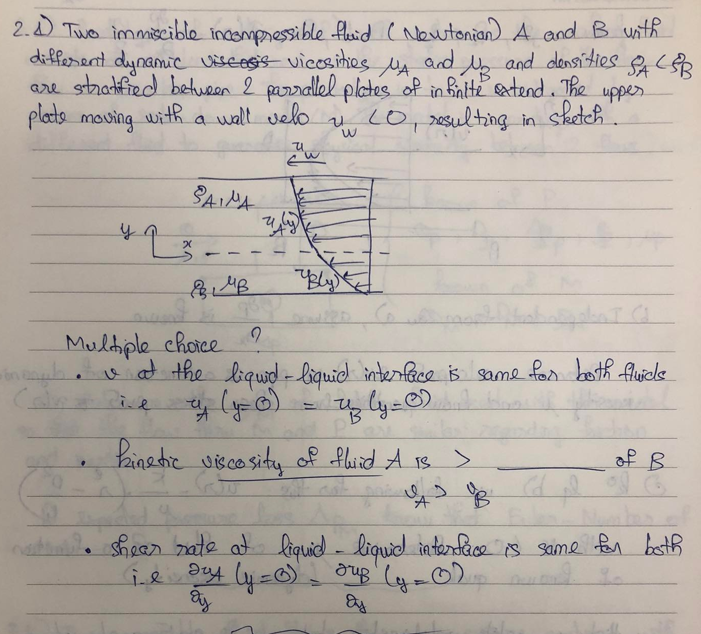 2.1) Two immiscible incompressible fluid (Newtonian) A and B with
different dynamic viscosis vicosities μA and μB and densities ρA < ρB
are stratified between 2 parrallel plates of infinite extend. The upper
plate moving with a wall velo uw < 0, resulting in sketch.
uw
ρA, μA
uA(y)
y
x
ρB, μB
uB(y)
Multiple choice ?
• v at the liquid-liquid interface is same for both fluids
i.e uA (y=0) = uB (y=0)
• kinetic viscosity of fluid A is > ________ of B
νA > νB
• Shear rate at liquid-liquid interface is same for both
i.e ∂uA/∂y (y=0) = ∂uB/∂y (y=0)